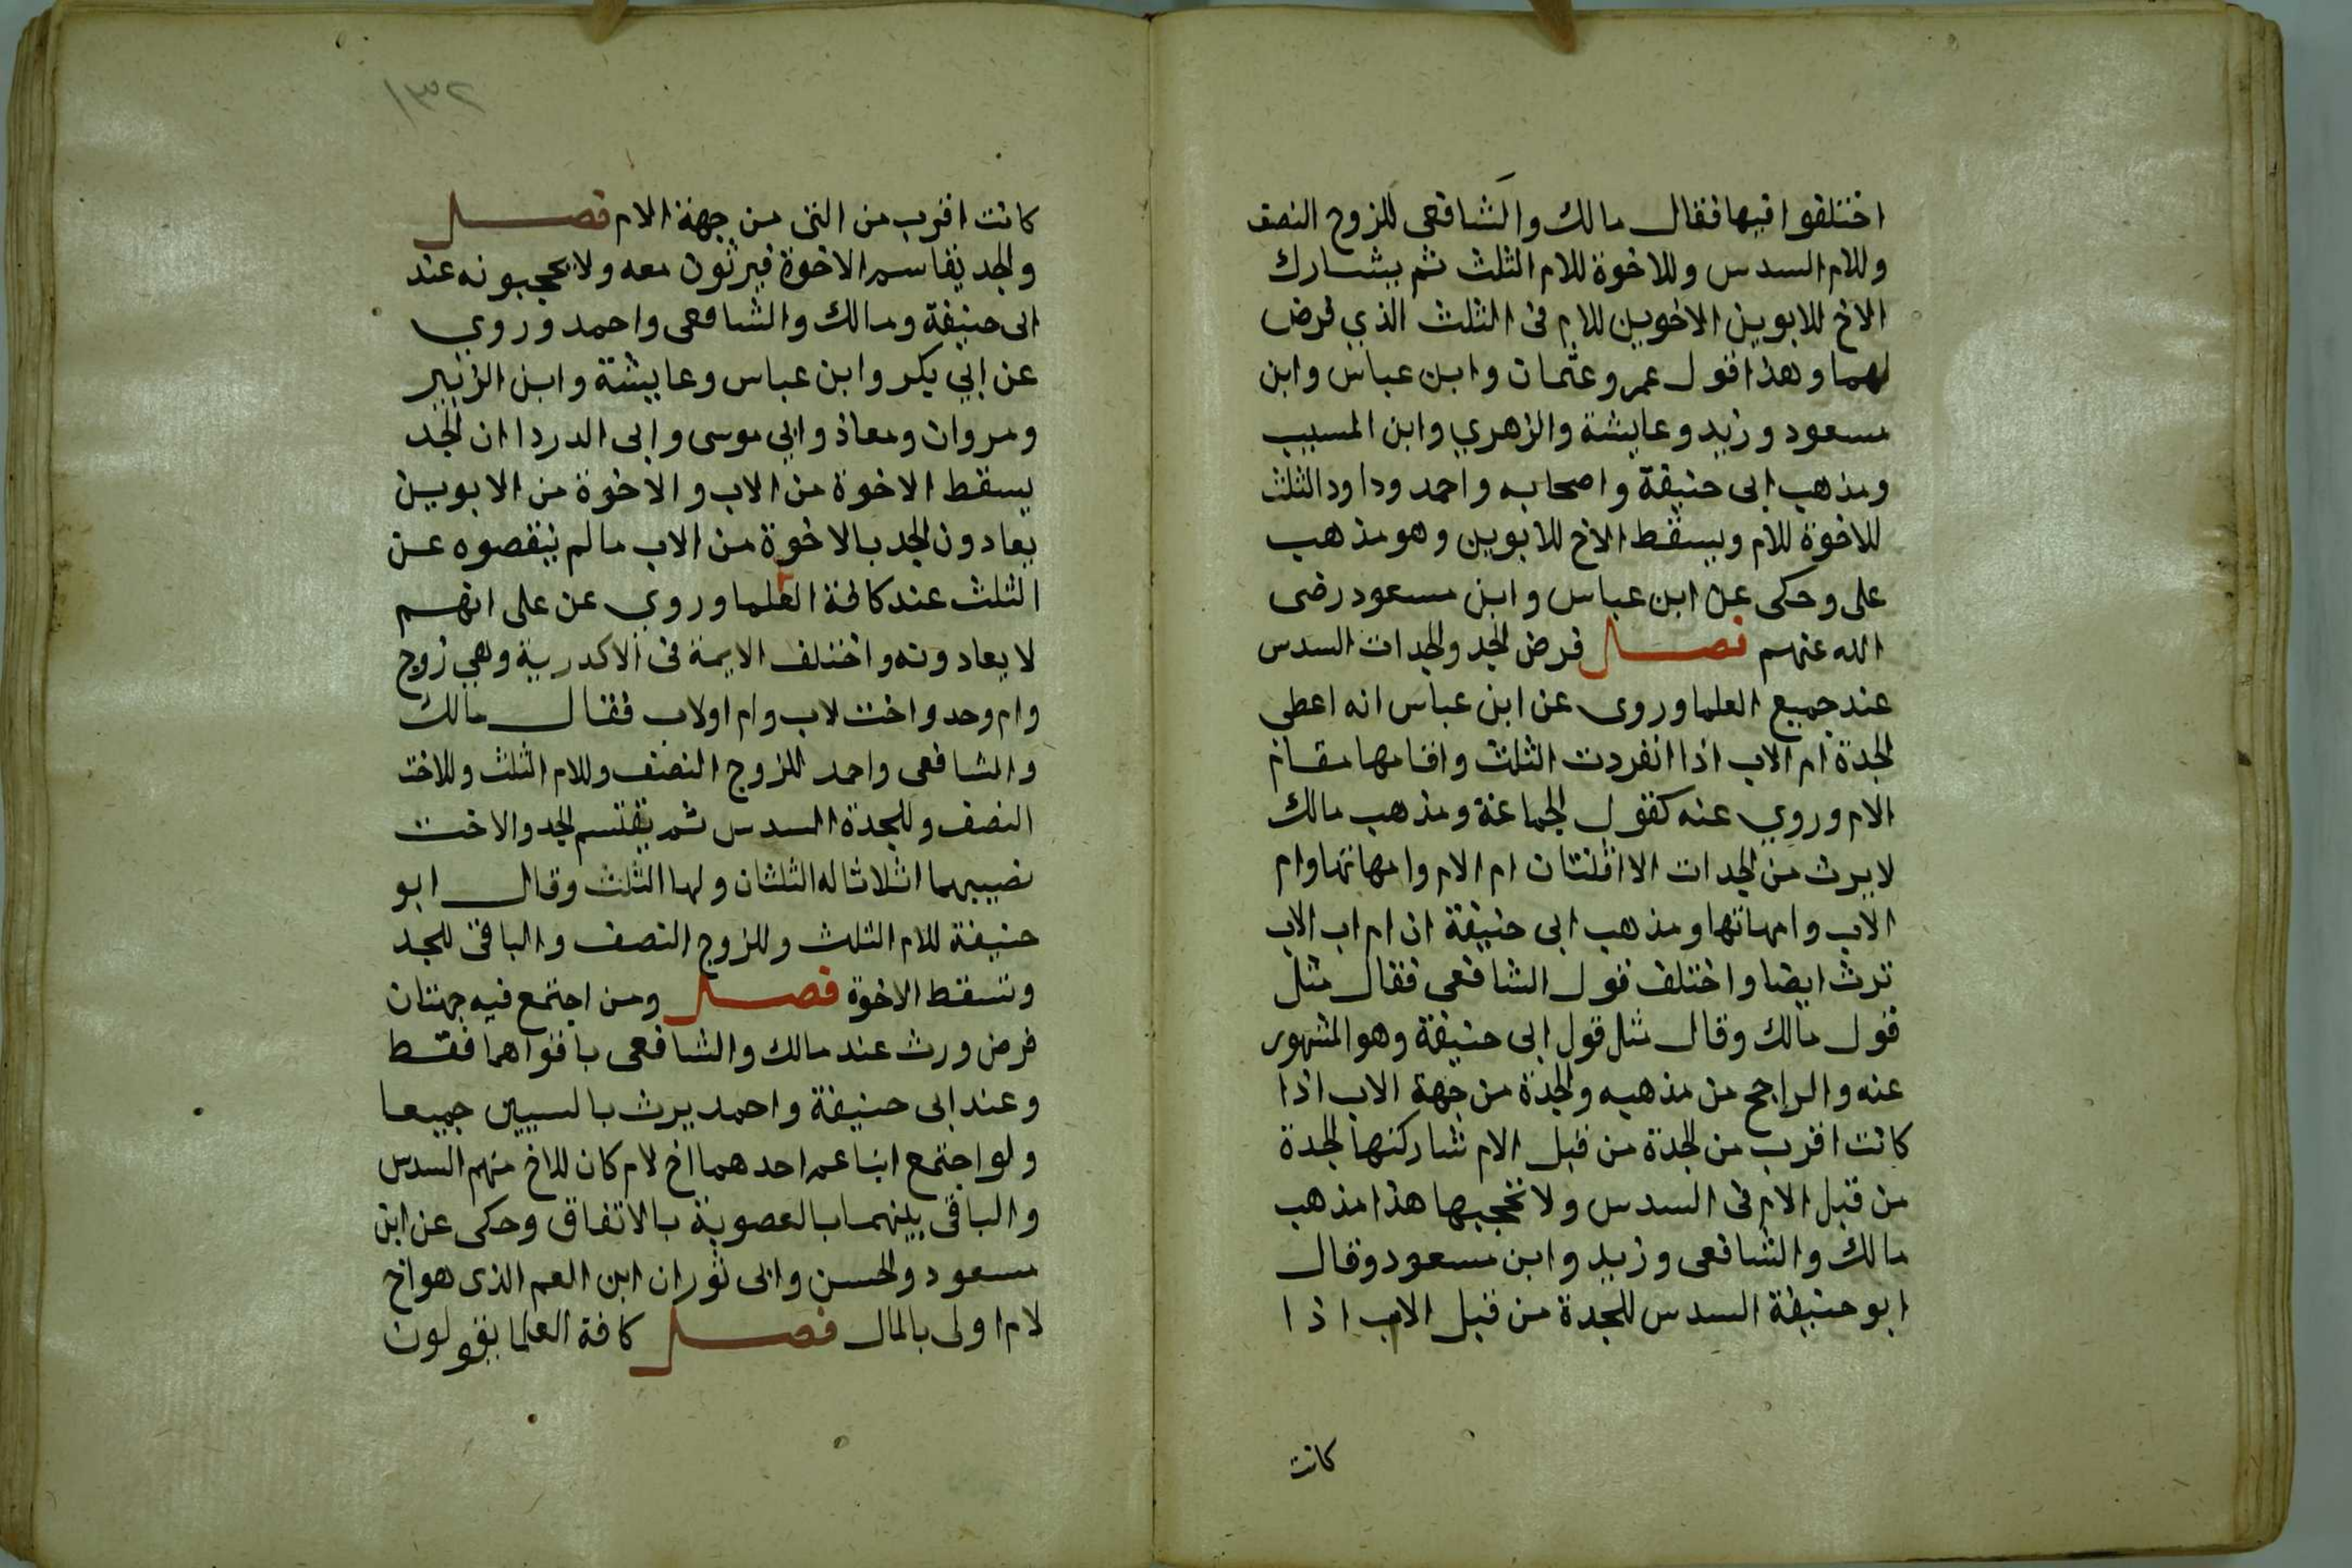 اختلفوا فيها فقال مالك والشافعى للزوج النصف
وللام السدس وللاخوة للام الثلث ثم يشارك
الاخ للابوين الاخوين للام فى الثلث الذي فرض
لهما وهذا قول عمر وعثمان وابن عباس وابن
مسعود وزيد وعايشة والزهري وابن المسيب
ومذهب ابى حنيفة واصحابه واحمد وداود الثلث
للاخوة للام ويسقط الاخ للابوين وهو مذهب
على وحكى عن ابن عباس وابن مسعود رضى
الله عنهم فصل فرض الجد والجدات السدس
عند جميع العلما وروى عن ابن عباس انه اعطى
الجدة ام الاب اذا انفردت الثلث واقامها مقام
الام وروي عنه كقول الجماعة ومذهب مالك
لا يرث من الجدات الا اثنتان ام الام وامهاتها وام
الاب وامهاتها ومذهب ابى حنيفة ان ام اب الاب
ترث ايضا واختلف قول الشافعى فقال مثل
قول مالك وقال مثل قول ابى حنيفة وهو المشهور
عنه والراجح من مذهبه والجدة من جهة الاب اذا
كانت اقرب من الجدة من قبل الام شاركتها الجدة
من قبل الام فى السدس ولا تحجبها هذا مذهب
مالك والشافعى وزيد وابن مسعود وقال
ابو حنيفة السدس للجدة من قبل الاب اذا
كانت
٢٣١
كانت اقرب من التى من جهة الام فصل
والجد يقاسم الاخوة فيرثون معه ولا يحجبونه عند
ابى حنيفة ومالك والشافعى واحمد وروي
عن ابي بكر وابن عباس وعايشة وابن الزبير
ومروان ومعاذ وابي موسى وابى الدردا ان الجد
يسقط الاخوة من الاب والاخوة من الابوين
يعادون الجد بالاخوة من الاب ما لم ينقصوه عن
الثلث عند كافة العلما وروي عن على انهم
لا يعادونه واختلف الايمة فى الاكدرية وهي زوج
وام وجد واخت لاب وام اولاب فقال مالك
والشافعى واحمد للزوج النصف وللام الثلث وللاخت
النصف وللجدة السدس ثم يقتسم الجد والاخت
نصيبهما اثلاثا له الثلثان ولها الثلث وقال ابو
حنيفة للام الثلث وللزوج النصف والباقى للجد
وتسقط الاخوة فصل ومن اجتمع فيه جهتان
فرض ورث عند مالك والشافعى باقواهما فقط
وعند ابى حنيفة واحمد يرث بالسببين جميعا
ولو اجتمع ابنا عم احدهما اخ لام كان للاخ منهم السدس
والباقى بينهما بالعصوبة بالاتفاق وحكى عن ابن
مسعود والحسن وابى ثور ان ابن العم الذى هو اخ
لام اولى بالمال فصل كافة العلما يقولون